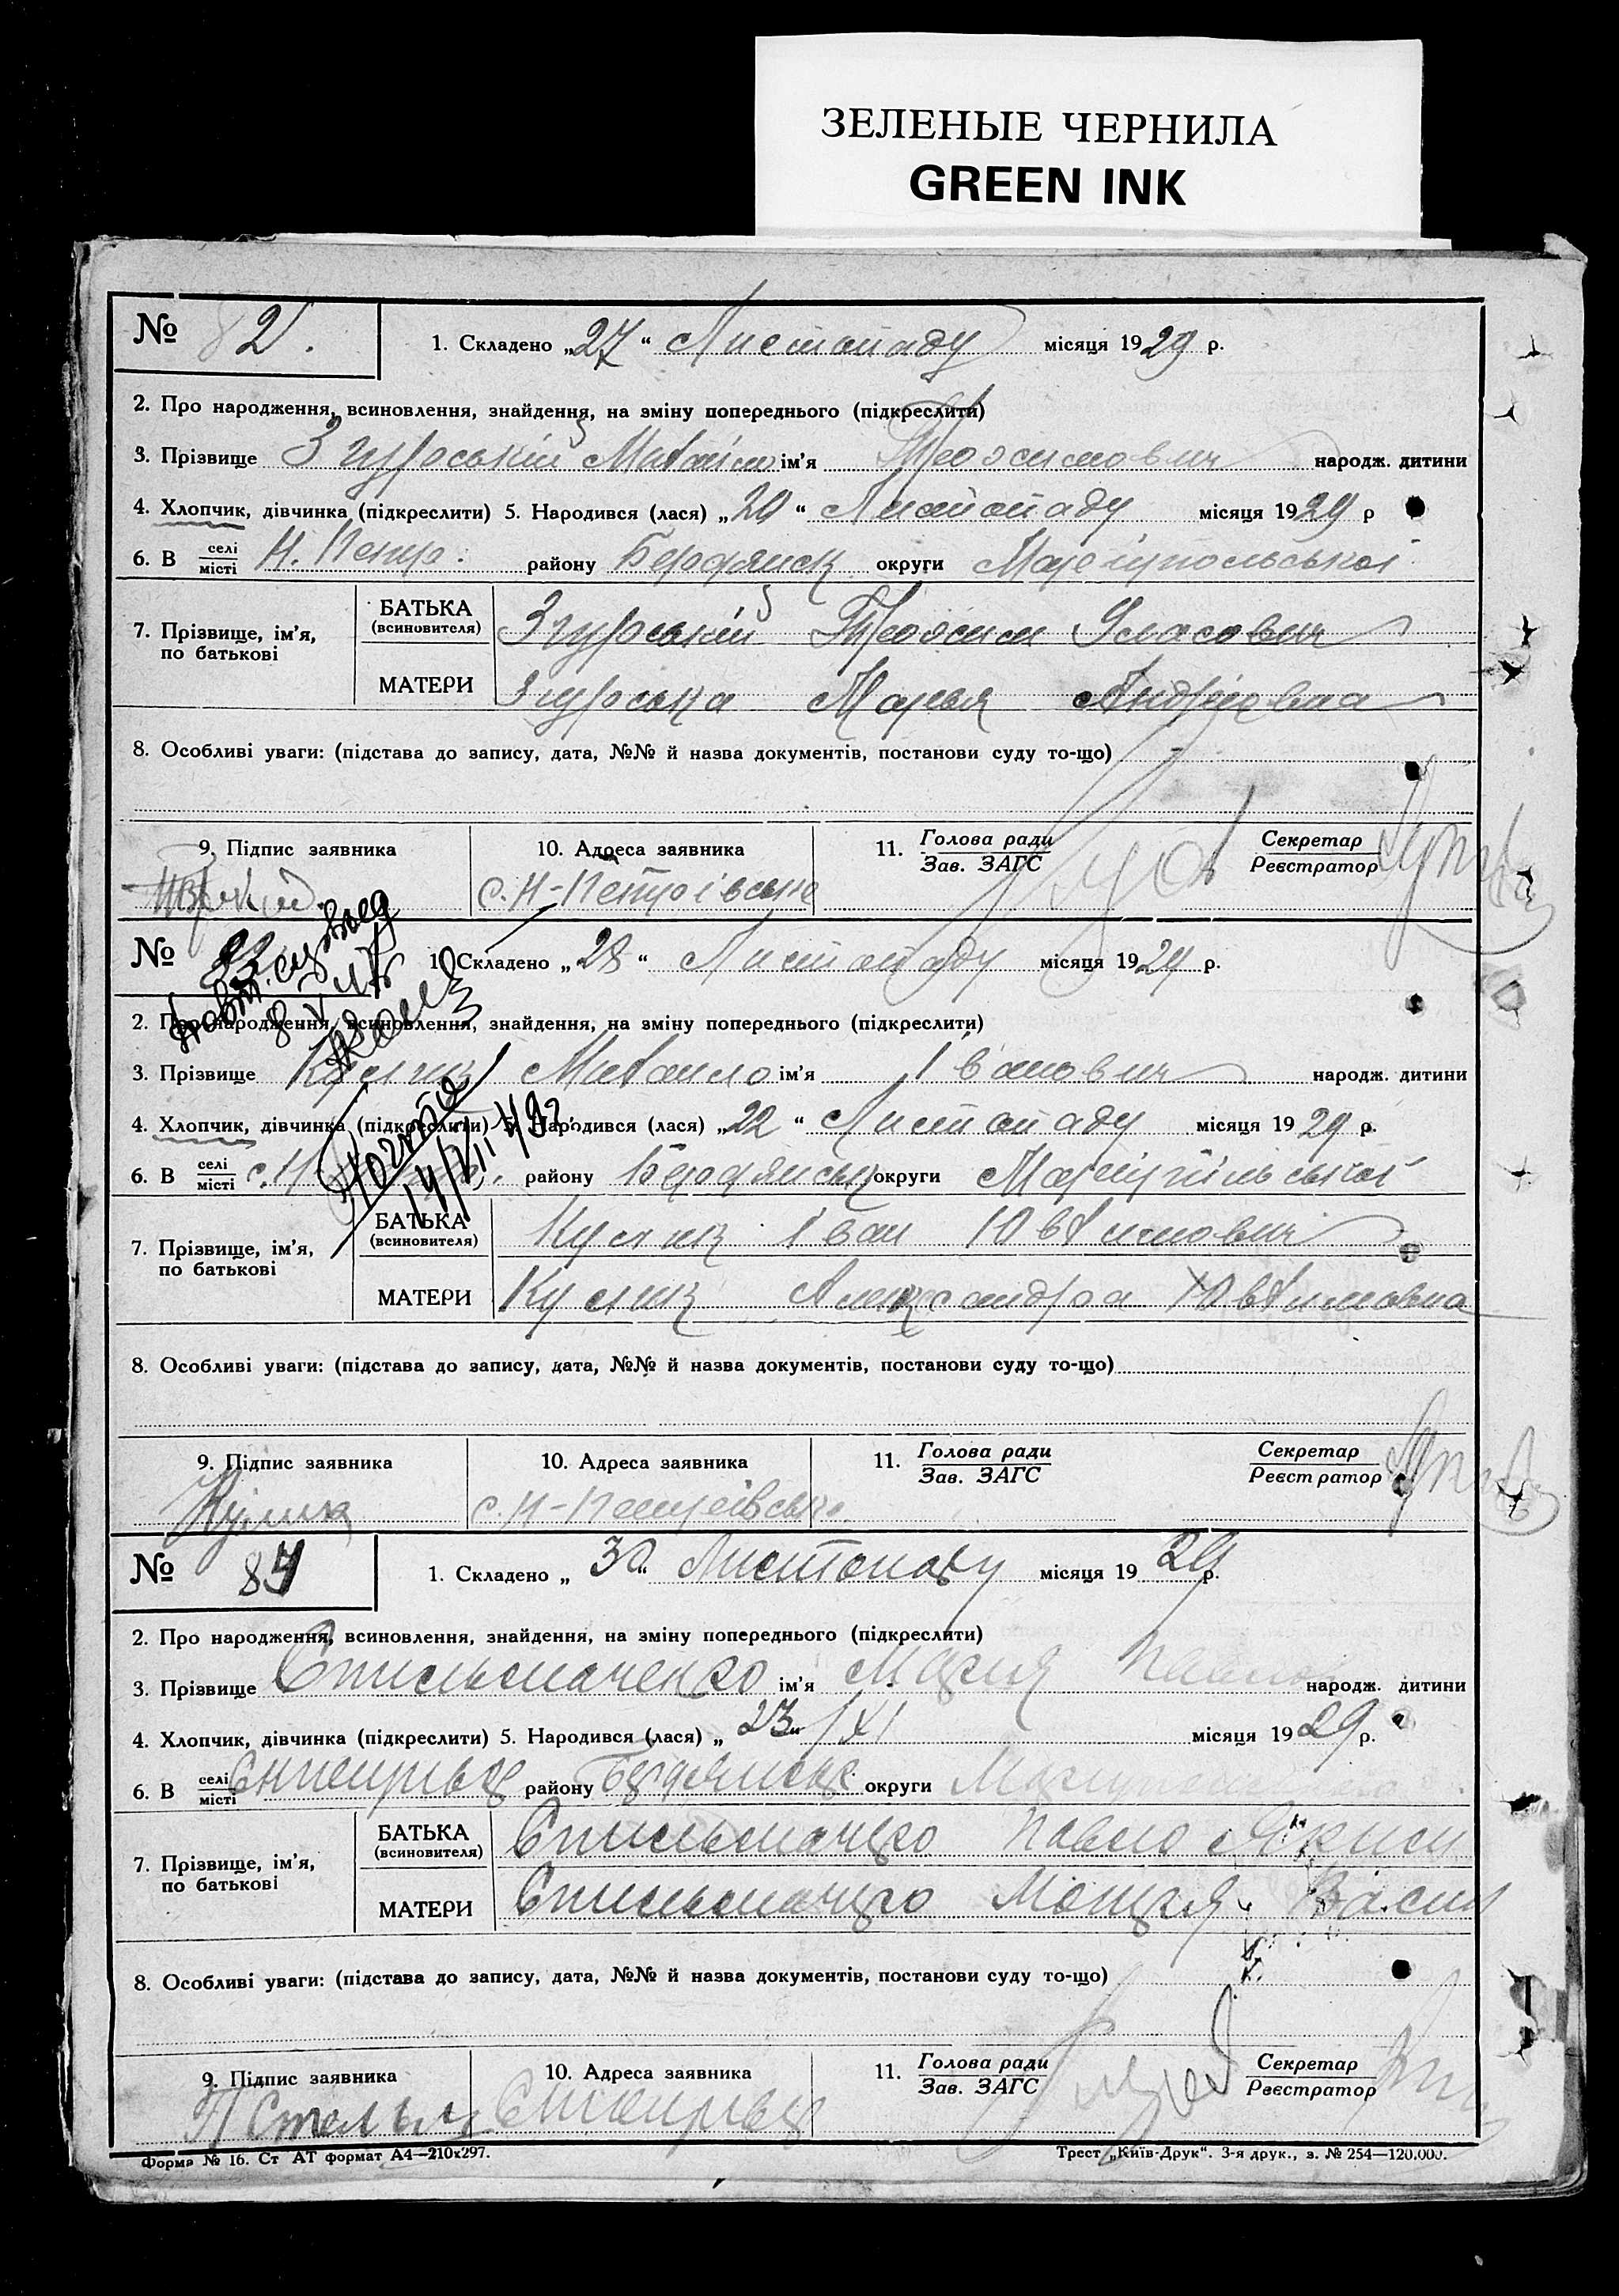 ЗЕЛЕНЫЕ ЧЕРНИЛА
GREEN INK
№ 82.
1. Складено „27“ Листопаду місяця 1929 р.
2. Про народження, всиновлення, знайдення, на зміну попереднього (підкреслити)
3. Прізвище Згурський Михайло ім'я народж. дитини
4. Хлопчик, дівчинка (підкреслити) 5. Народився (лася) „20“ Листопаду місяця 1929 р
6. В селі місті Н. Петр. району Бердянск округи Маріупольської
7. Прізвище, ім'я, по батькові
БАТЬКА (всиновителя) Згурський
МАТЕРИ Згурська Марья Андріевна
8. Особливі уваги: (підстава до запису, дата, №№ й назва документів, постанови суду то-що)
9. Підпис заявника
10. Адреса заявника с. Н-Петроівське
11. Голова ради Зав. ЗАГС
Секретар Реєстратор
№
1. Складено „28“ Листопаду місяця 1929 р.
2. Про народження, всиновлення, знайдення, на зміну попереднього (підкреслити)
3. Прізвище Кулик Михайло ім'я Іванович народж. дитини
4. Хлопчик, дівчинка (підкреслити) 5. Народився (лася) „22“ Листопаду місяця 1929 р.
6. В селі місті с. Н району Бердянськ округи Маріупільської
7. Прізвище, ім'я, по батькові
БАТЬКА (всиновителя) Кулик Іван Юхимович
МАТЕРИ Кулик Александра Юхимовна
8. Особливі уваги: (підстава до запису, дата, №№ й назва документів, постанови суду то-що)
9. Підпис заявника Кулик
10. Адреса заявника с. Н-Петроівське
11. Голова ради Зав. ЗАГС
Секретар Реєстратор
№ 84
1. Складено „30“ Листопаду місяця 1929 р.
2. Про народження, всиновлення, знайдення, на зміну попереднього (підкреслити)
3. Прізвище Стельмаченко ім'я Марія народж. дитини
4. Хлопчик, дівчинка (підкреслити) 5. Народився (лася) „23“ /XI місяця 1929 р.
6. В селі місті району Бердянське округи
7. Прізвище, ім'я, по батькові
БАТЬКА (всиновителя) Стельмаченко Павло Яким
МАТЕРИ Стельмаченко Мотря Васил
8. Особливі уваги: (підстава до запису, дата, №№ й назва документів, постанови суду то-що)
9. Підпис заявника П Стельм
10. Адреса заявника
11. Голова ради Зав. ЗАГС
Секретар Реєстратор
Форма № 16. Ст АТ формат А4—210х297.
Трест „Київ-Друк“. 3-я друк., з. № 254—120.000.